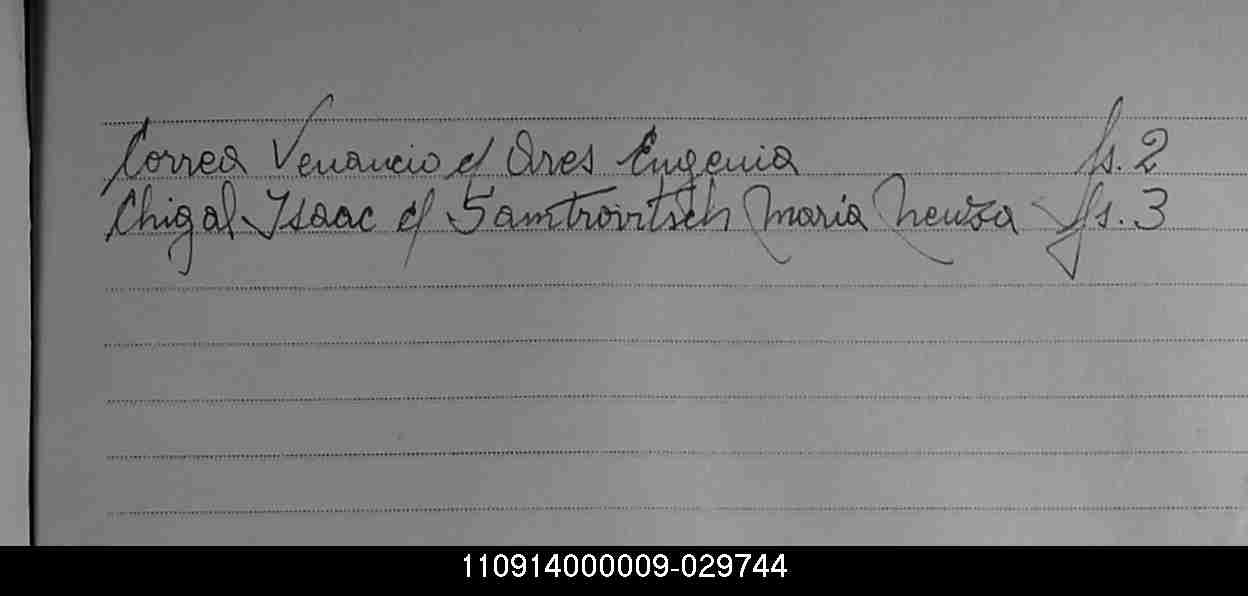 Correa Venancio c/ Ares Eugenia fs. 2
Chigal Isaac c/ Samtroirtsch Maria Neuza fs. 3
110914000009-029744